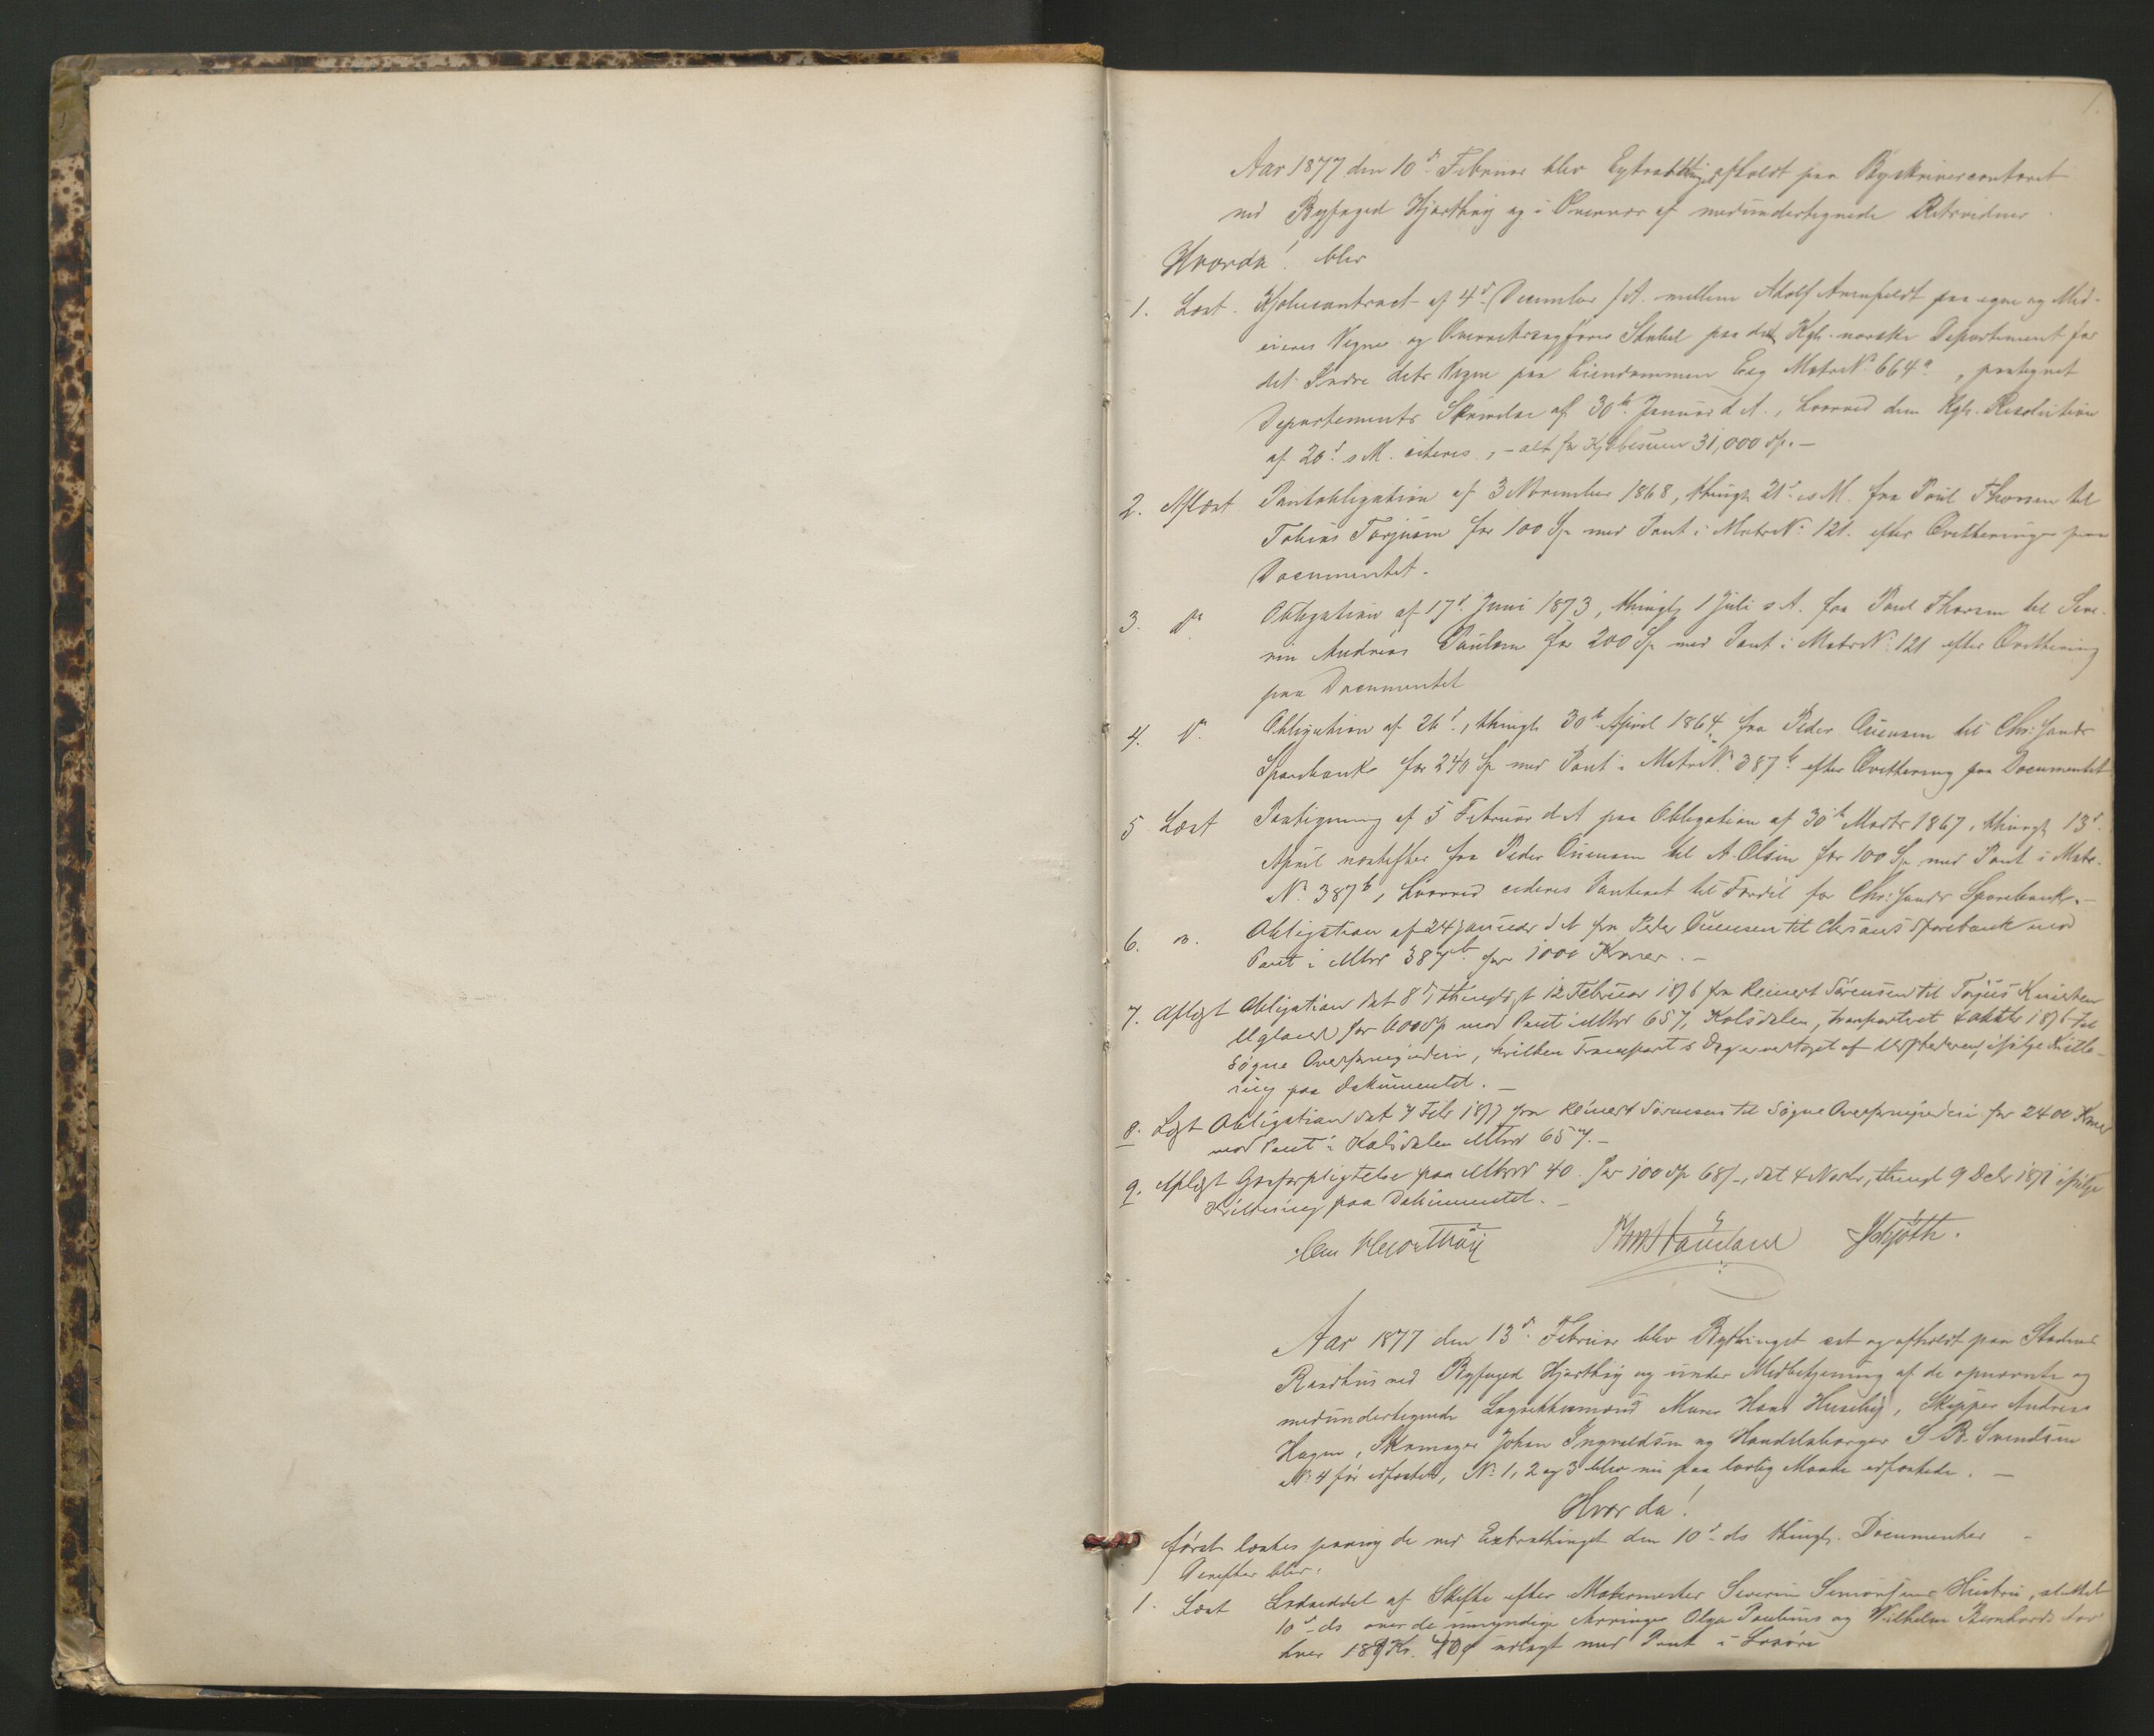 1.
Aar 1877 den 10d Februar blev Extrathinget afholdt paa Byskrivercontoret
ved Byfoged Hjorthøy og i Overvær af medundertegnede Retsvidner
Hvorda! blev
1. Læst. Kjøbecontract af 4d December f A. mellem Adolf Arenfeldt paa egne og Med-
eieres Vegne og Overretssagfører Stabel paa det Kgl. norske Departement for
det Indre dets Vegne paa Eiendommen Eeg MatrN: 664a, paategnet
Departements Skrivelse af 30te Januar d.A., hvorved den Kgle. Resolution
af 20d s M. citeres, - alt for Kjøbesum 31,000 Sp. -
2. Aflæst Pantobligation af 3 November 1868, thingl. 21d s M. fra Poul Thorsen til
Tobias Torjusen for 100 Sp med Pant i MatrN: 121. efter Qvittering paa
Documentet.
3. do Obligation af 17d Juni 1873, thingl. 1 Juli s A. fra Poul Thorsen til Seve-
rin Andreas Paulsen for 200 Sp med Pant i MatrN: 121 efter Qvittering
paa Documentet
4. do. Obligation af 26d, thingl. 30te April 1864 fra Peder Ouensen til Chr:sands
Sparebank for 240 Sp med Pant i MatrN. 387b. efter Qvittering paa Documentet
5 Læst Paategning af 5 Februar d A paa Obligation af 30te Marts 1867, thingl. 13d.
April næstefter fra Peder Ouensen til A. Olsen for 100 Sp. med Pant i Matr.
N. 387b, hvorved cederes Panteret til Fordel for Chr:sands Sparebank. -
6. do. Obligation af 24 Januar d A fra Peder Ouensen til Chrsands Sparebank med
Pant i MNr 387b. for 1000 Kroner. -
7. Aflæst Obligation dat 8d, thinglyst 12 Februar 1876 fra Reinert Sørensen til Torjus Knutsen
Ugland for 600 Sp med Pant i MNr 657, Kolsdalen, transporteret 1876 til
Søgne Overformynderi, hvilken Transport s Dag er vedtaget af ifølge Kvitte-
ring paa Dokumentet. -
8. Læst Obligation dat 7 Febr 1877 fra Reinert Sørensen til Søgne Overformynderi for 2400 Kroner
med Pant i Kolsdalen MNr 657. -
9. Aflæst paa MNr 40 for 100 Sp 68 s, dat 4 Novbr, thingl 9 Decbr 1871 ifølge
Kvittering paa Dokumentet. -
Hjorthøy Haaland Schjøth.
Aar 1877 den 13d. Februar blev Bythinget sat og afholdt paa Stadens
Raadhus ved Byfoged Hjorthøy og under Medbetjening af de opnævnte og
medundertegnede Laugrettesmænd Murer Hans Huseby, Skipper Andreas
Hagen, Skomager Johan Ingvaldsen og Handelsborger S B. Svendsen
No: 4 før edfæstet, No: 1, 2 og 3 blev nu paa lovlig Maade edfæstede. -
Hvor da!
først læstes paany de ved Extrathinget den 10d ds thingl. Documenter -
Derefter blev:
1. Læst Lodseddel af Skifte efter Malermester Severin Hustru, sluttet
10d ds over de umyndige Arvinger Olga Pauline og Wilhelm Bernhards Arv
hver 189 Kr. udlagt med Pant i Løsøre